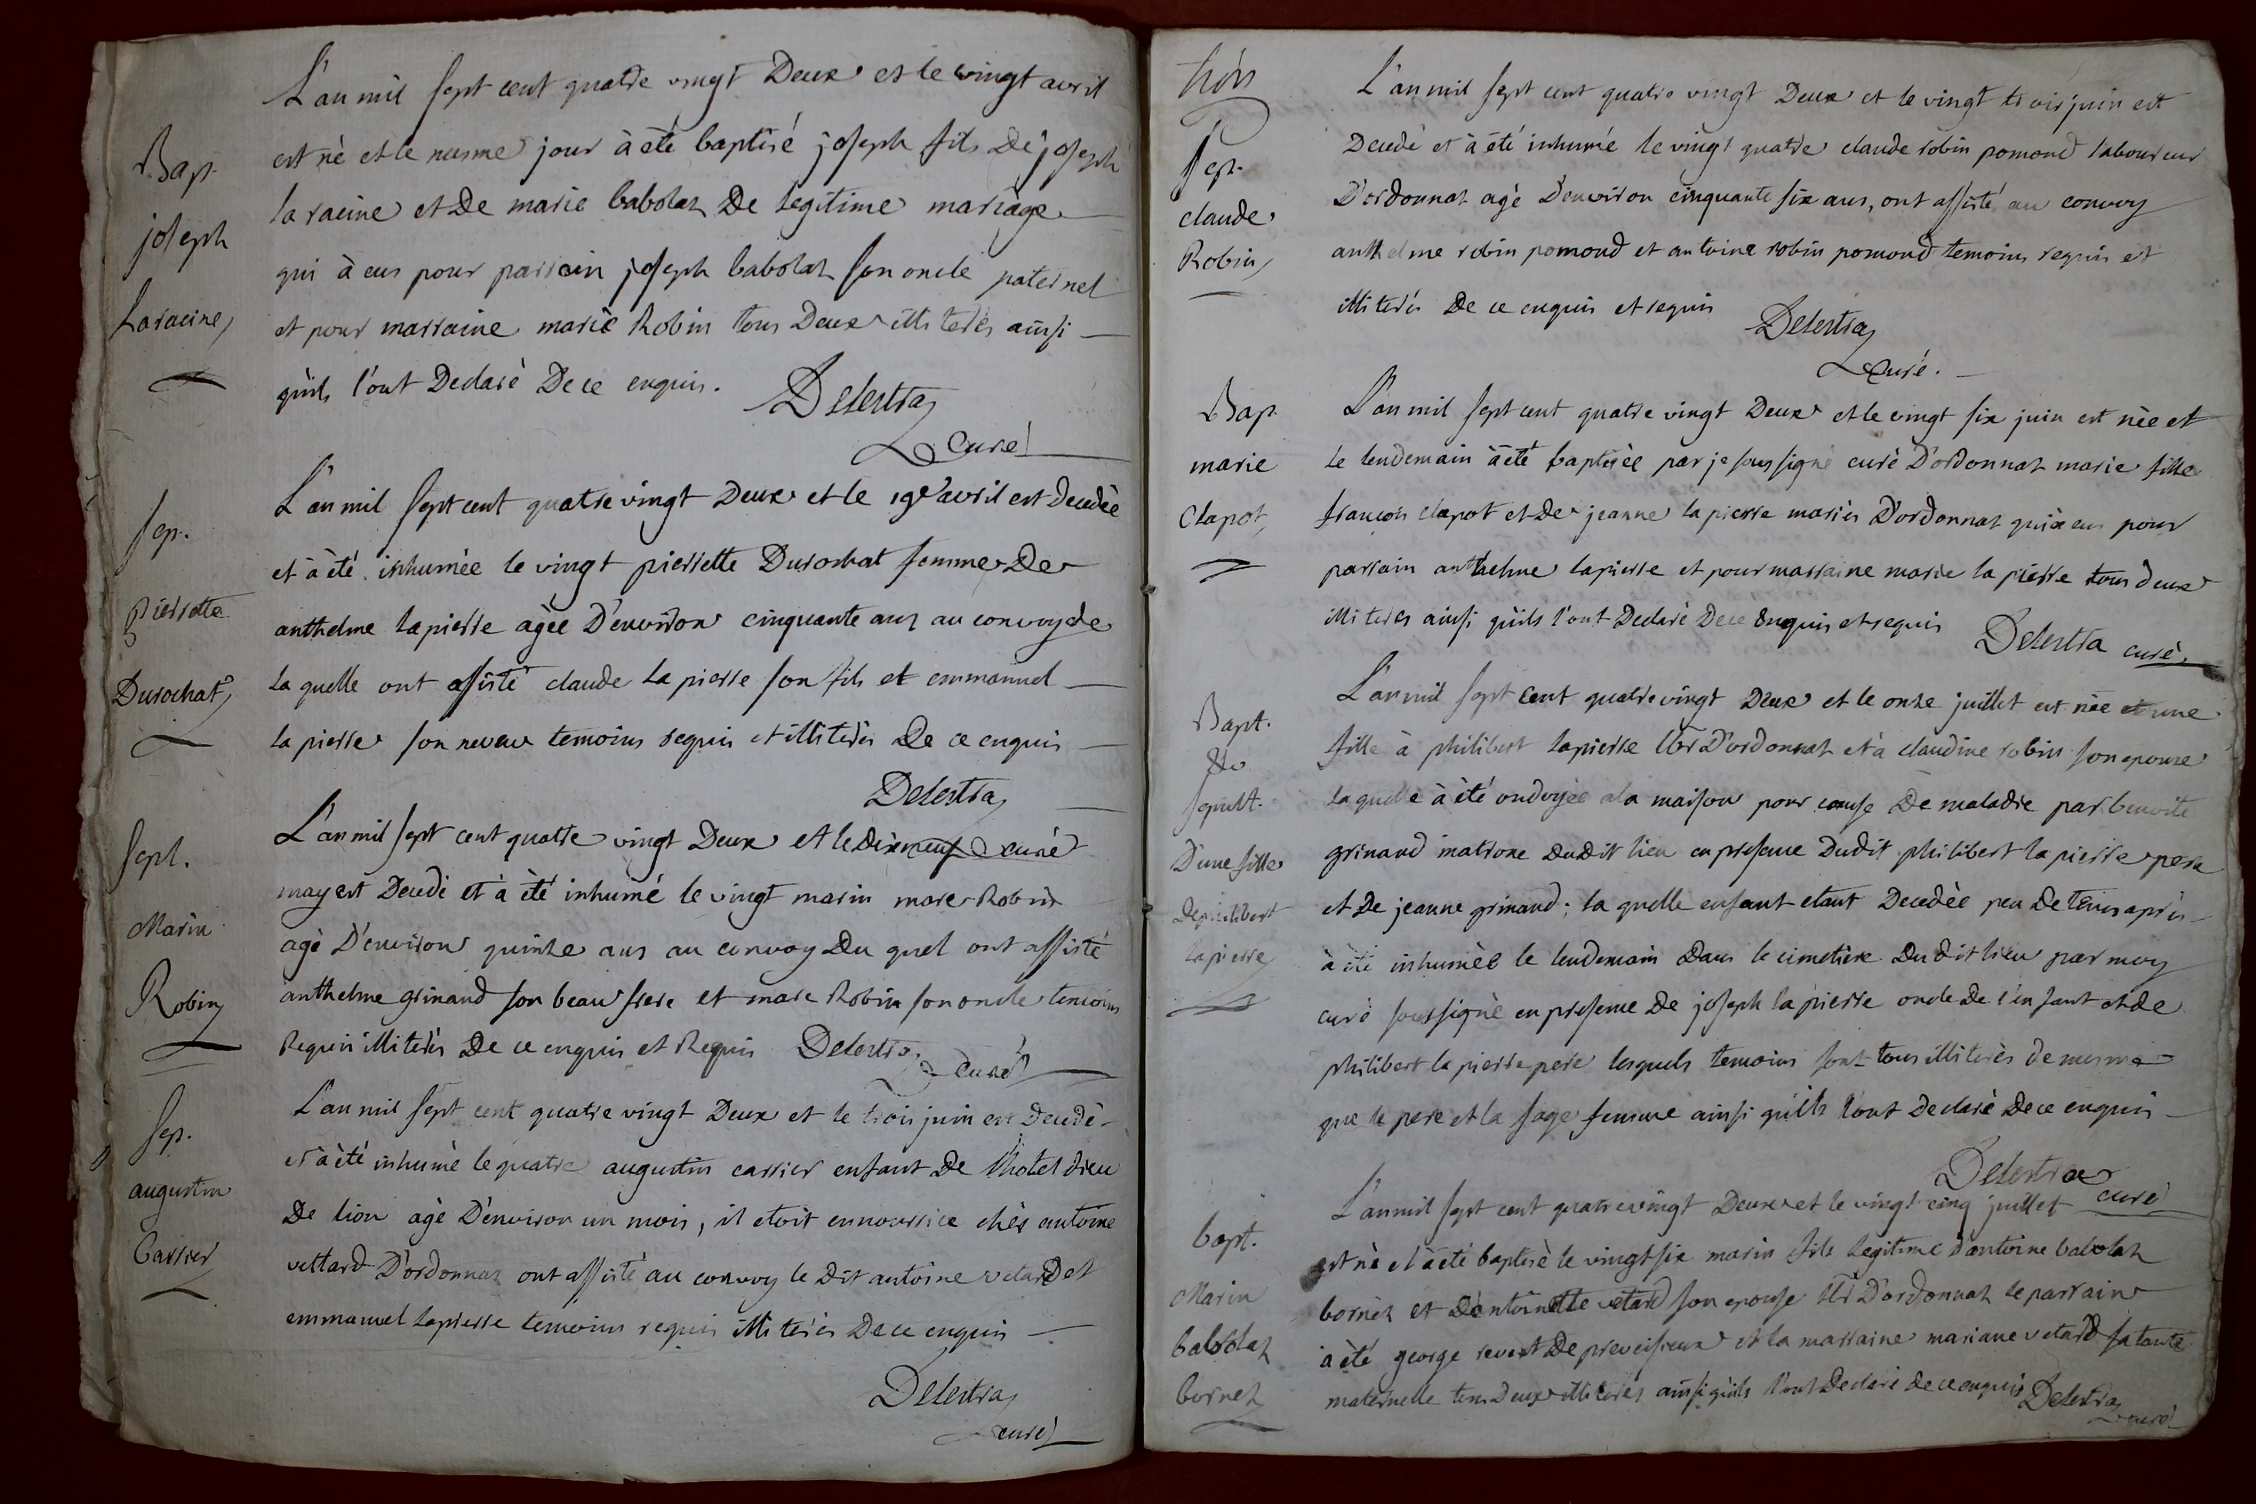 L'an mil sept cent quatre vingt Deux et le vingt avril
Bap.
est nè et le mesme jour à èté baptisé joseph fils De joseph
joseph
la racine et De marie babolat De legitime mariage
Laracine
qui à eus pour parrain joseph babolat son oncle paternel
et pour marraine marie Robin tous Deux illiterés ainsi
qu'ils l'ont Declarè De ce enquis.
Delestra
curé
L'an mil sept cent quatre vingt Deux et le 19e avril est decedèe
Sep.
et à èté inhumée le vingt pierrette Durochat femme De
Pierrette
anthelme lapierre agèe D'environ cinquante ans au convoy de
Durochat
la quelle ont assisté claude la pierre son fils et emmanuel
la pierre son neveu temoins requis et illiterés De ce enquis
Delestra
curé
L'an mil sept cent quatre vingt Deux et le Dix neuf
Sept.
may est Decedé et à èté inhumé le vingt marin marc Robin
Marin
agè D'environ quinze ans au convoy Du quel ont assisté
Robin
anthelme grinand son beau frere et marc Robin son oncle temoins
Requis illiterés De ce enquis et Requis Delestra
curé
L'an mil sept cent quatre vingt Deux et le trois juin est Decedé
Sep.
et à èté inhumè le quatre augustin carrier enfant De l'hotel dieu
augustin
De lion agè D'environ un mois, il etoit en nourrice chés antoine
Carrier
vettard D'ordonnat ont assisté au convoy le Dit antoine vetard et
emmanuel lapierre temoins requis illiterés De ce enquis
Delestra
curé
trois
L'an mil sept cent quatre vingt Deux et le vingt trois juin est
Sep.
Decedè et à été inhumé le vingt quatre claude robin pomond laboureur
claude
D'ordonnat agè D'environ cinquante six ans, ont assisté au convoy
Robin
anthelme robin pomond et antoine robin pomond temoins requis et
illiterés De ce enquis et requis
Delestra
curé.
Bap
L'an mil sept cent quatre vingt Deux et le vingt six juin est nèe et
marie
le lendemain à èté baptisèe par je soussigné curè D'ordonnat marie fille
Clapot
françois clapot et De jeanne la pierre mariès D'ordonnat qui à eus pour
parrain anthelme lapierre et pour marraine marie la pierre tous deux
illiterés ainsi qu'ils l'ont Declarè De ce enquis et requis
Delestra curè
L'an mil sept cent quatre vingt Deux et le onze juillet est nèe et une
Bapt.
&
fille à philibert lapierre lbr D'ordonnat et à claudine robin son epouse
Sepult.
laquelle à èté ondoyèe a la maison pour cause De maladie par benoite
D'une fille
grinand matrone DuDit lieu en presence Dudit philibert la pierre pere
De philibert
et De jeanne grinand; la quelle enfant etant Decedèe peu De tems après
lapierre
à èté inhumèe le lendemain Dans le cimetiere Du dit lieu par moy
curé soussigné en presence De joseph la pierre oncle De l'enfant et de
philibert la pierre pere lesquels temoins sont tous illiterès de mesme
que le pere et la sage femme ainsi qu'ils l'ont declarè De ce enquis
Delestra
curé
L'an mil sept cent quatre vingt Deux et le vingt cinq juillet
bapt.
est nè et à èté baptisè le vingt six marin fils legitime d'antoine babolat
Marin
bornet et D'antoinette vetard son epouse D'ordonnat le parrain
babolat
à èté george revert De et la marraine mariane vetard sa tante
bornet
maternelle tous Deux illiterés ainsi qu'ils l'ont Declarè de ce enquis Delestra
curé